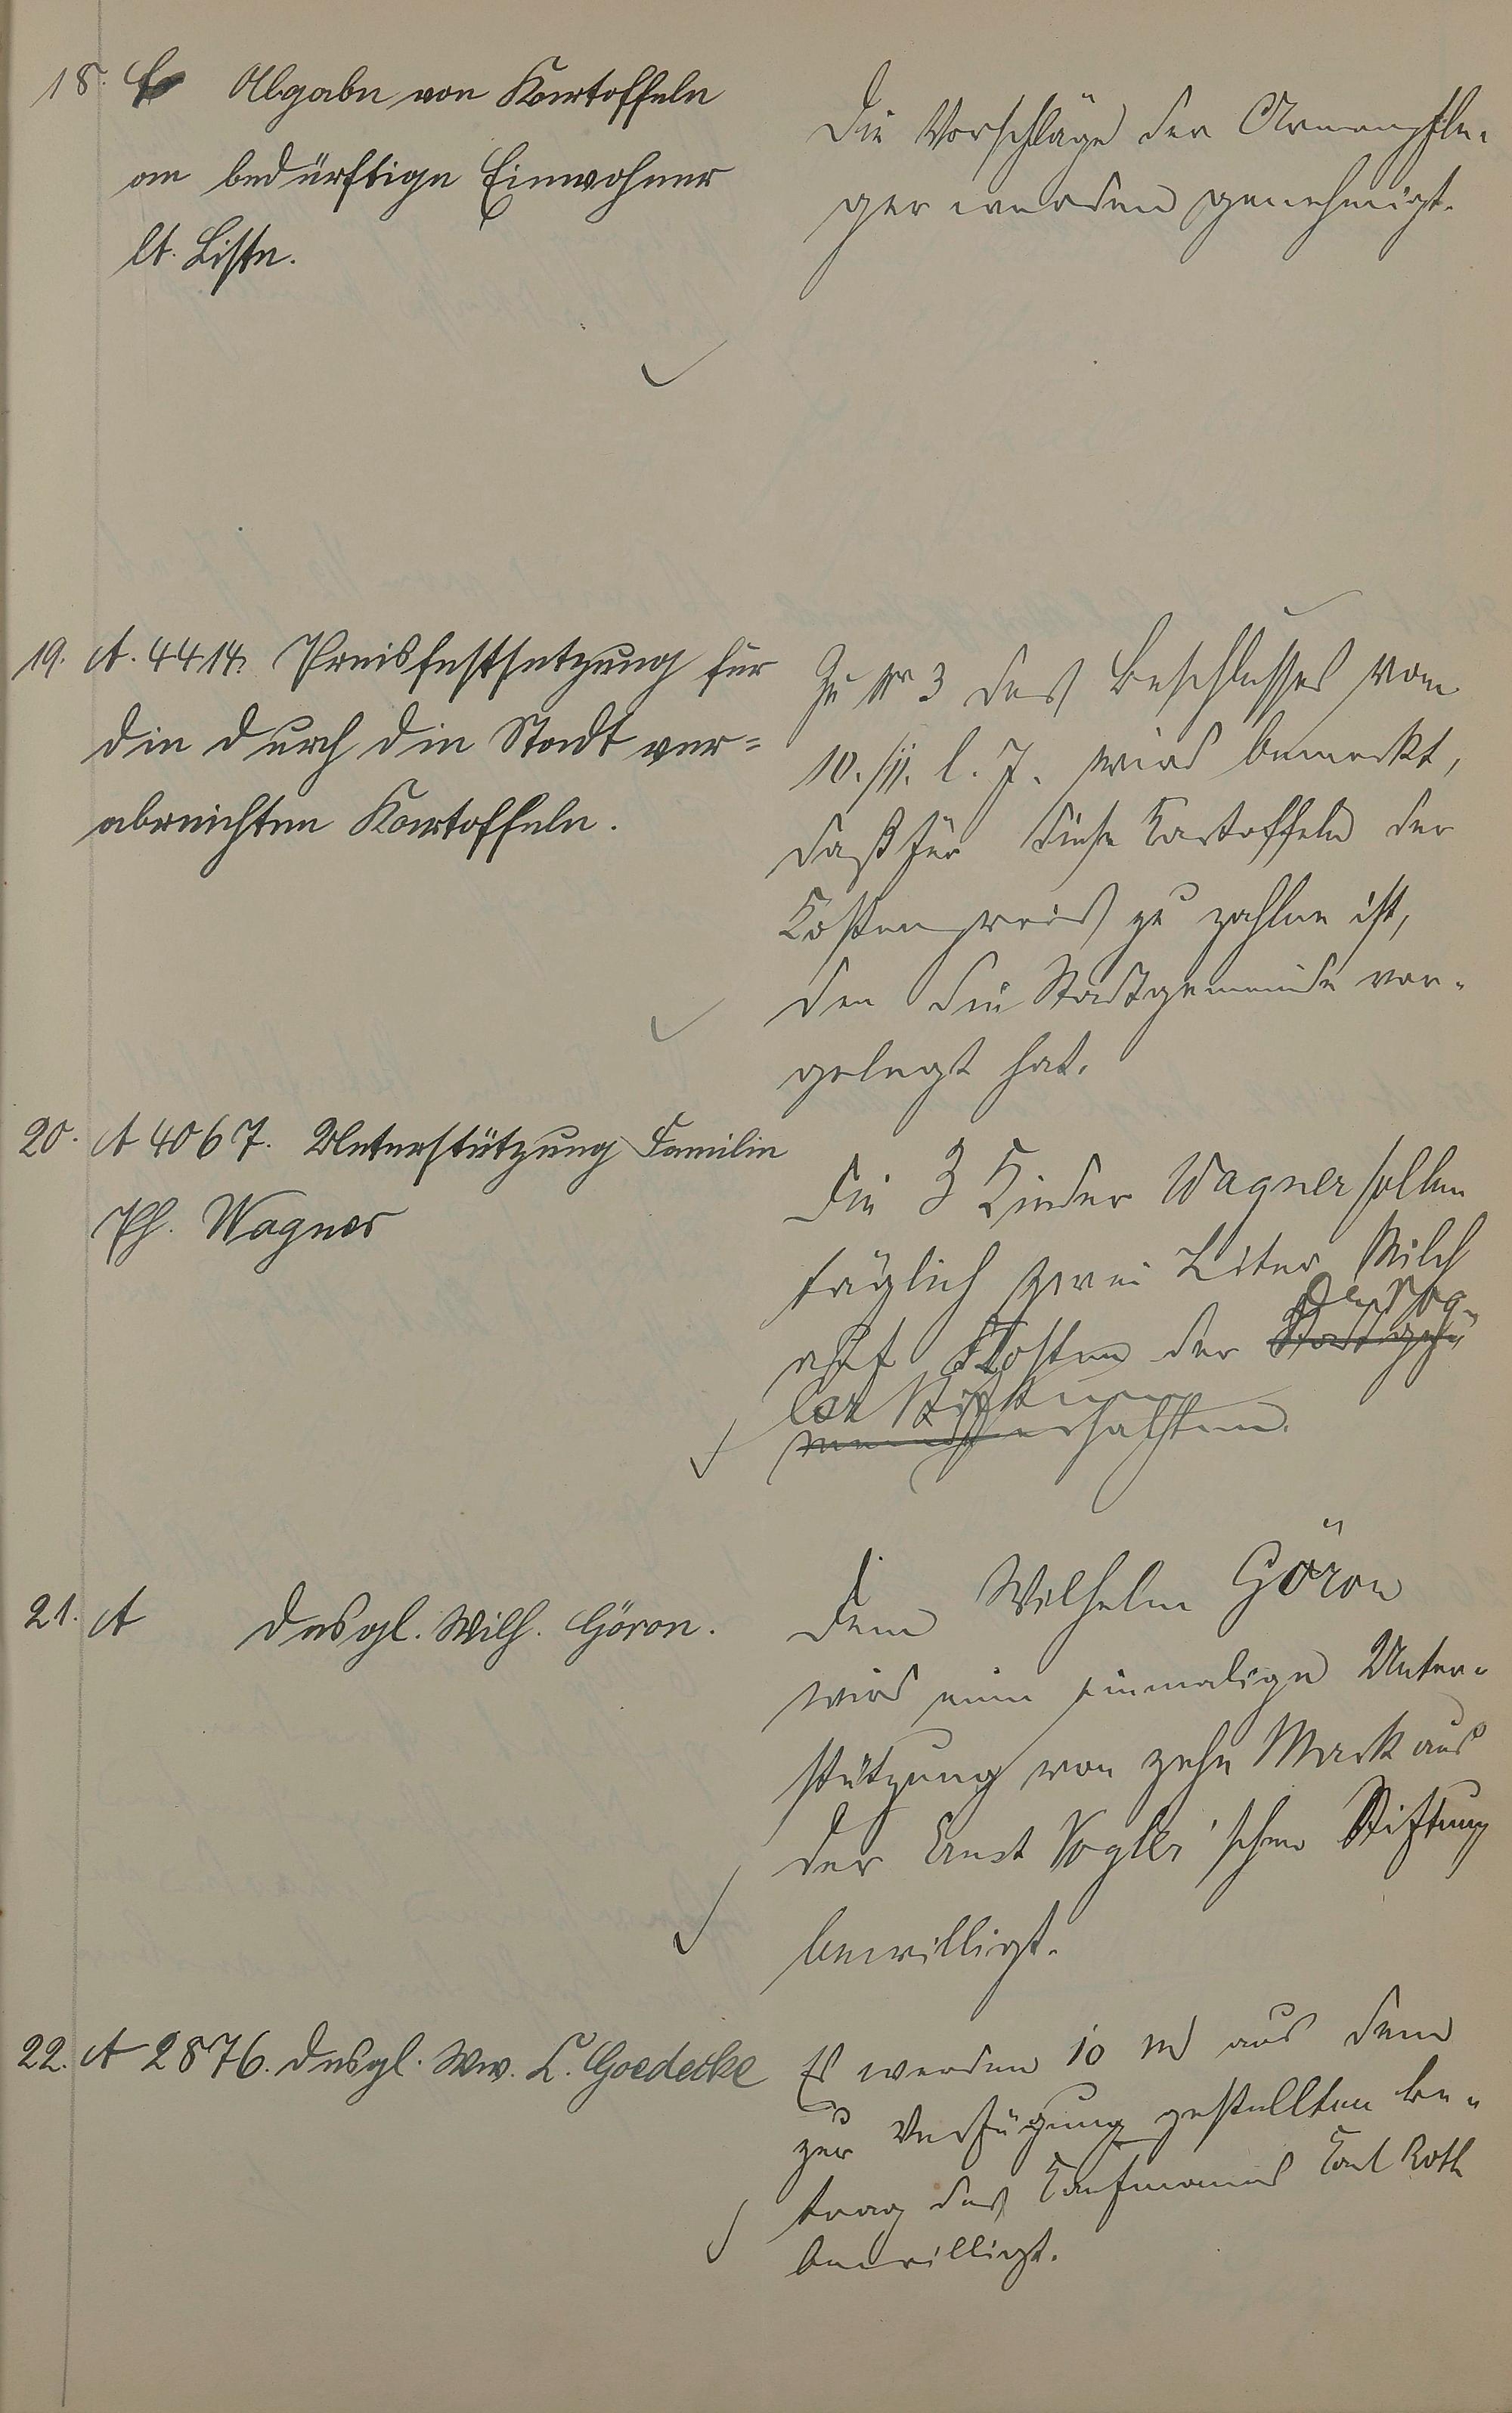 18. Abgabe von Kartoffeln
an bedürftige Einwohner
lt. Liste.
Die Vorschläge der Armenpfle-
ger werden genehmigt.
19. A. 4414. Preisfestsetzung für
die durch die Stadt ver=
abreichten Kartoffeln.
Zu Nr 3 des Beschlusses vom
10./11. l. J. wird bemerkt,
daß für diese Kartoffeln der
Kostenpreis zu zahlen ist,
den die Stadtgemeinde vor-
gelegt hat.
20. A 4067. Unterstützung Familie
Ph. Wagner
Die 3 Kinder Wagner sollen
täglich zwei Liter Milch
auf Kosten der Stadtge-
ler Stiftung
meinde erhalten.
21. A desgl. Wilh. Göron.
Dem Wilhelm Göron
wird eine einmalige Unter-
stützung von zehn Mark aus
der Ernst Vogler'schen Stiftung
bewilligt.
22. A 2876. desgl. Ww. L. Goedecke
Es werden 10 M aus dem
zur Verfügung gestellten Be-
trag des Kaufmanns Karl Roth
bewilligt.